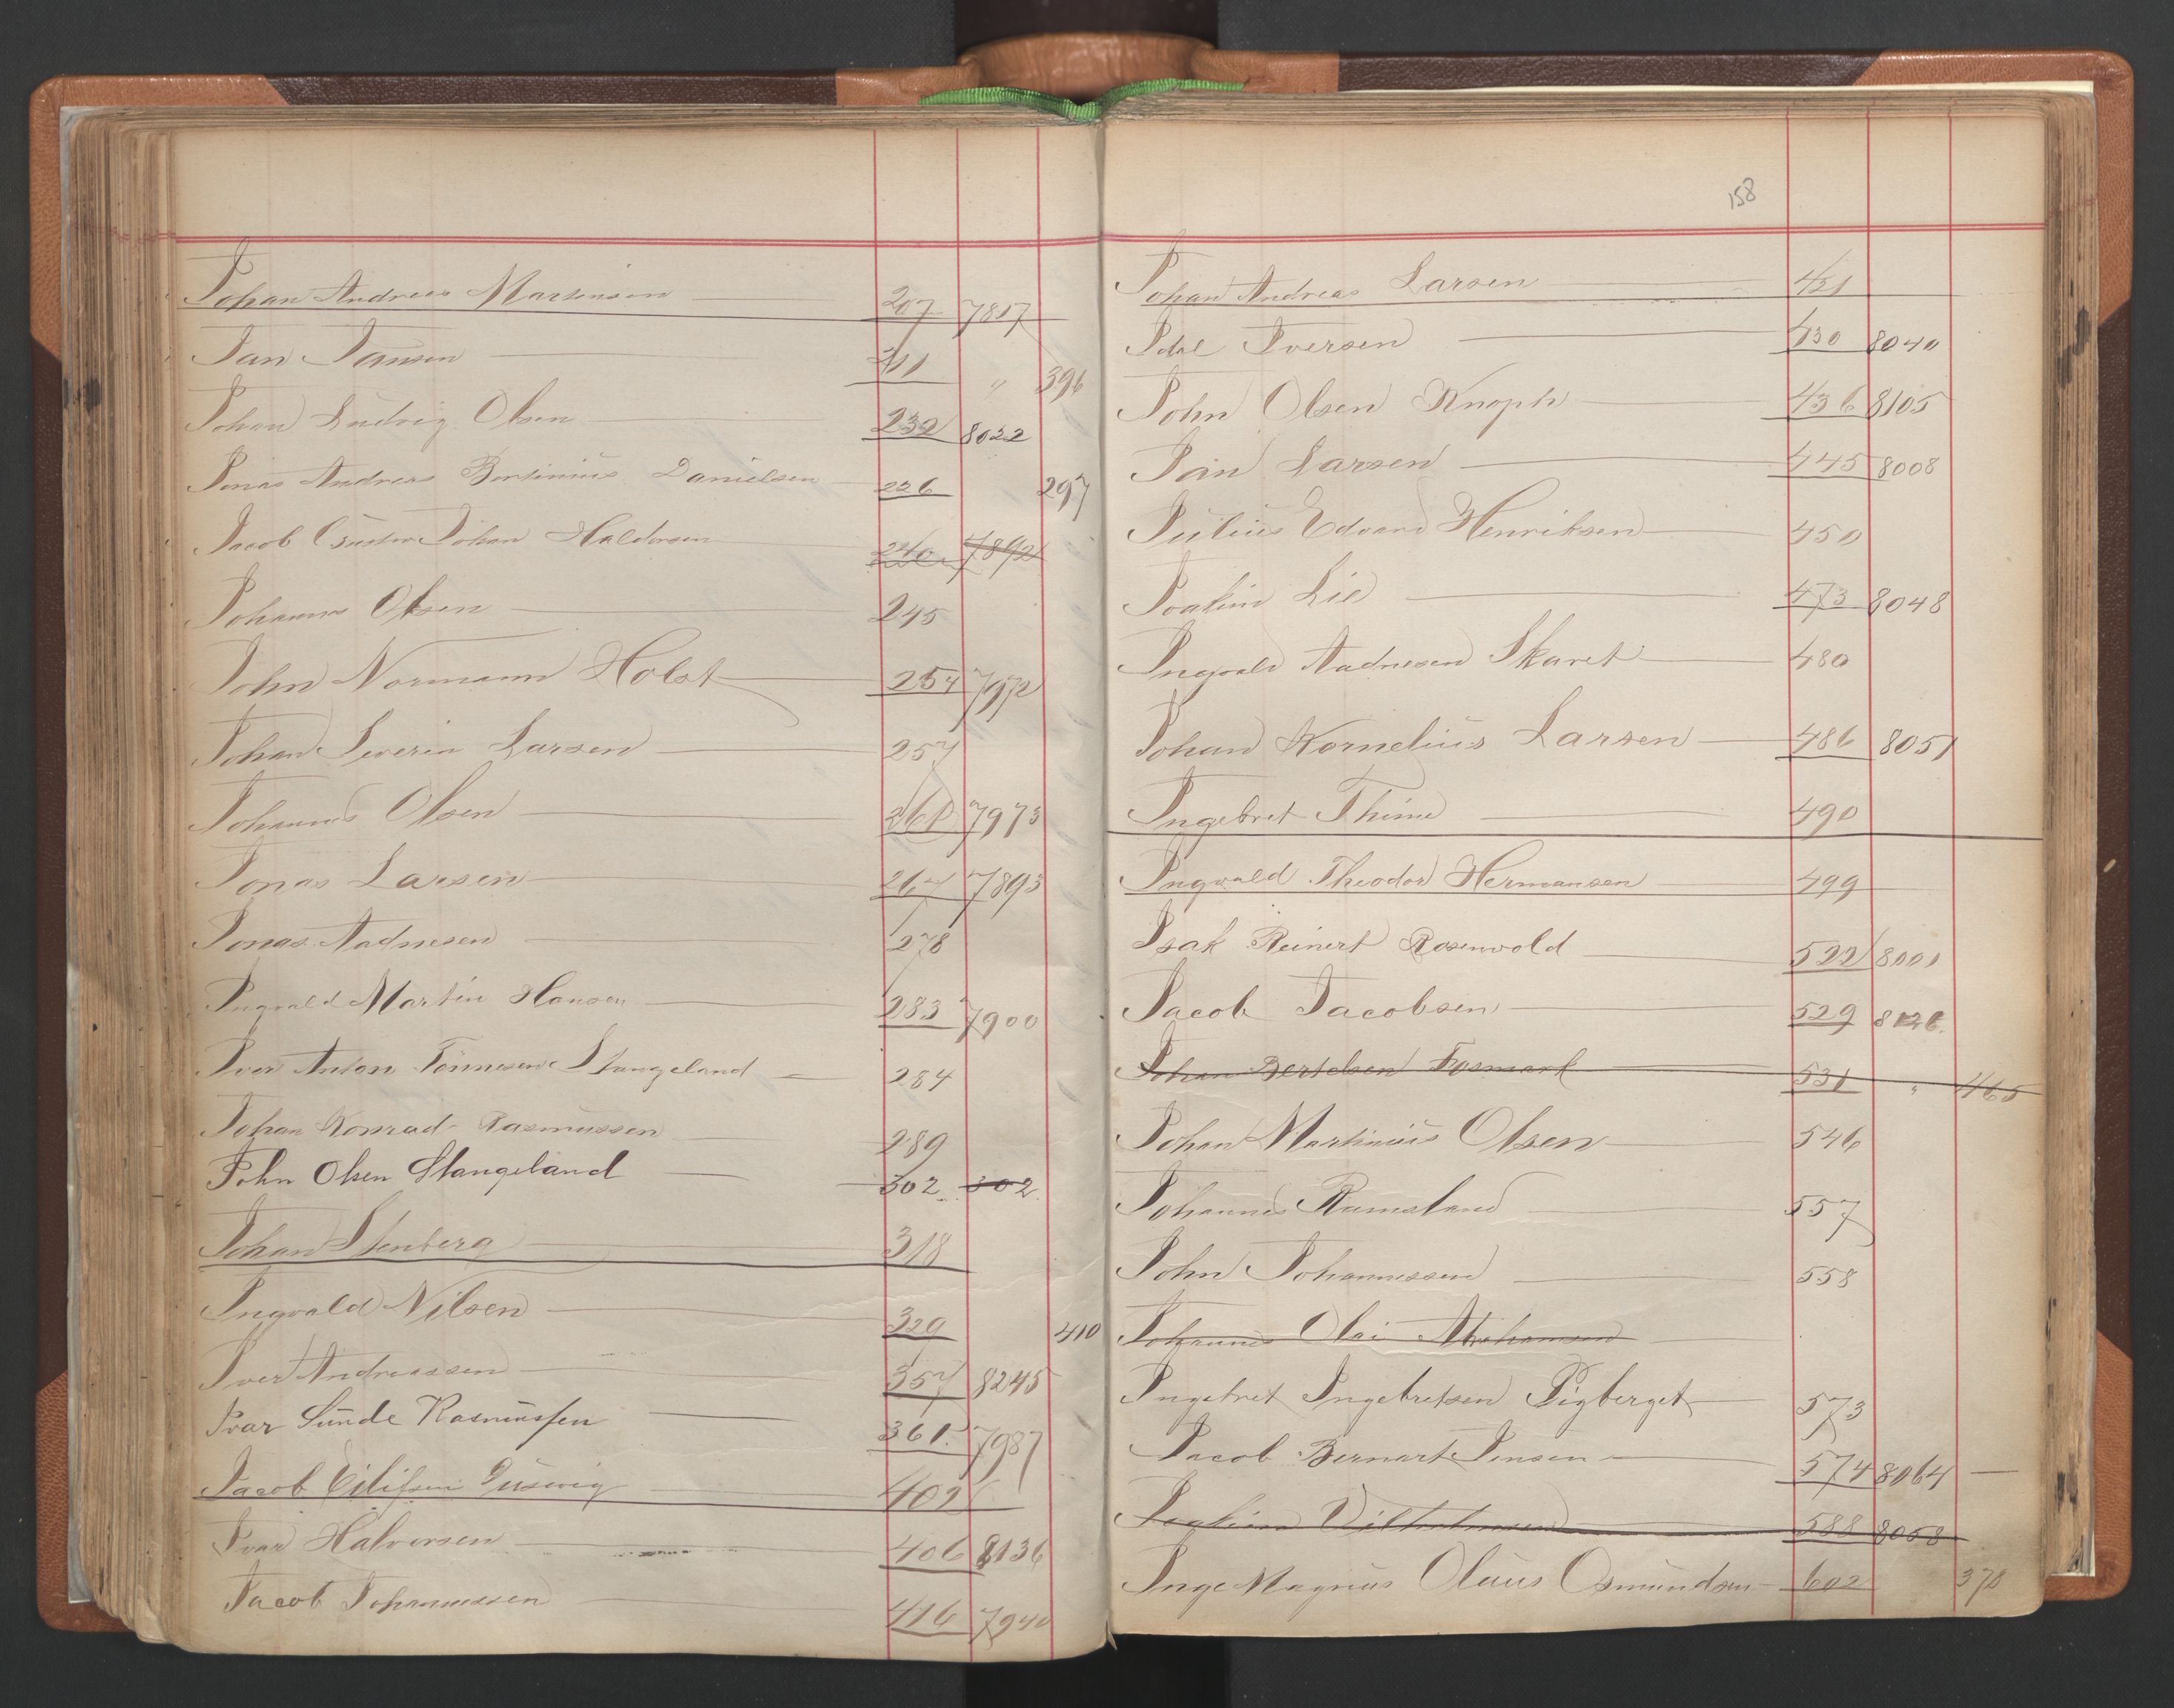 Johan Andreas Martinsen 207 7817
Jan Jansen 211 " 396
Johan Ludvig Olsen 232 8022
Jonas Andreas Bertinius Danielsen 226 297
Jacob Gustav Johan Haldorsen 240 7892
Johannes Olsen 245
John Normann Holst 254 7972
Johan Severin Larsen 257
Johannes Olsen 261 7973
Jonas Larsen 267 7893
Jonas Aadnesen 278
Ingvald Martin Hansen 283 7900
Iver Anton Tönnesen Stangeland 284
Johan Konrad Rasmussen 289
John Olsen Stangeland 302 302
Johan Stenberg 318
Ingvald Nilsen 329 410
Iver Andreassen 357 8245
Ivar Sunde Rasmussen 361 7987
Jacob Eilifsen 402
Ivar Halvorsen 406 8136
Jacob Johannessen 416 7940
158
Johan Andreas Larsen 421
Idel Iversen 430 8040
John Olsen Knoph 436 8105
Jan Larsen 445 8008
Julius Edvard Henriksen 450
Joakim Lie 473 8048
Ingvald Aadnesen Skaret 480
Johan Kornelius Larsen 486 8051
Ingebret Thime 490
Ingvald Theodor Hermansen 499
Isak Reinert Rosenvold 522 8001
Jacob Jacobsen 529 8126
Johan Bertelsen Fosmark 531 " 465
Johan Martinius Olsen 546
Johannes Ramsland 557
John Johannessen 558
Johannes Olai Abrahamsen
Ingebret Ingebretsen Digberget 573
Jacob Bernart Jensen 574 8064
Joakim Vilhelmsen 588 8058
Inge Magnus Olaus Osmundsen 602 378